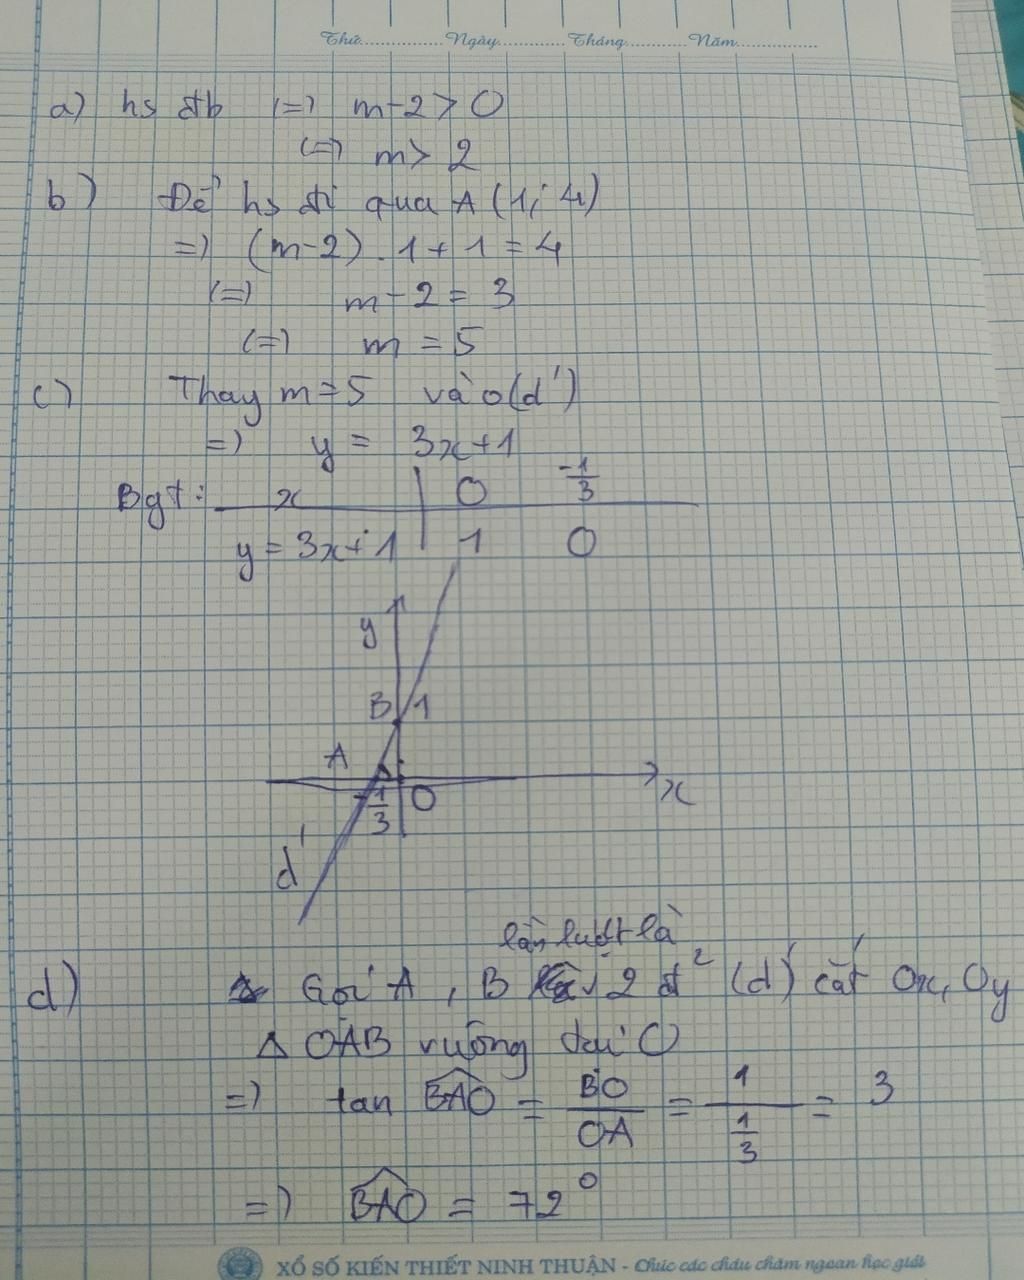 Thứ.............. Ngày............ Tháng............ Năm..............
a) hs đb (=) m-2 > 0
(=) m > 2
b) Để hs đi qua A (1; 4)
=) (m-2) . 1 + 1 = 4
(=) m - 2 = 3
(=) m = 5
c) Thay m = 5 vào (d')
=) y = 3x+1
Bgt: x 0 -1/3
y = 3x+1 1 0
y
B 1
A
x
-1/3 O
d'
lần lượt là
d) Gọi A, B 2 đ² (d') cắt Ox, Oy
Δ OAB vuông tại O
=) tan BAO = BO/OA = 1/(1/3) = 3
=) BAO = 72°
XỔ SỐ KIẾN THIẾT NINH THUẬN - Chúc các cháu chăm ngoan học giỏi